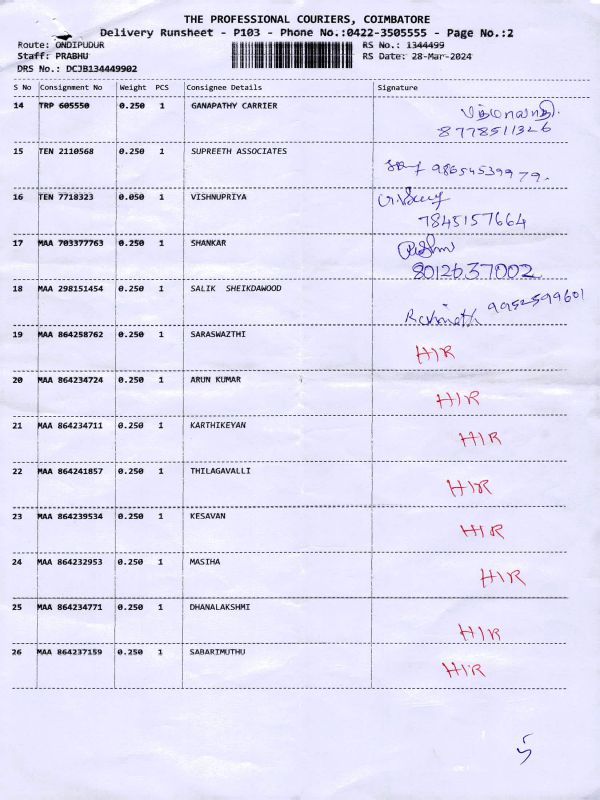 THE PROFESSIONAL COURIERS, COIMBATORE
Delivery Runsheet - P103 - Phone No.:0422-3505555 - Page No.:2
Route: ONDIPUDUR RS No.: 1344499
Staff: PRABHU RS Date: 28-Mar-2024
DRS No.: DCJB134449902
S No Consignment No Weight PCS Consignee Details Signature
14 TRP 605550 0.250 1 GANAPATHY CARRIER
8778511326
15 TEN 2110568 0.250 1 SUPREETH ASSOCIATES
9865453997 9.
16 TEN 7718323 0.050 1 VISHNUPRIYA
7845157664
17 MAA 703377763 0.250 1 SHANKAR
8012637002
18 MAA 298151454 0.250 1 SALIK SHEIKDAWOOD
9952599601
19 MAA 864258762 0.250 1 SARASWAZTHI
HIR
20 MAA 864234724 0.250 1 ARUN KUMAR
HIR
21 MAA 864234711 0.250 1 KARTHIKEYAN
HIR
22 MAA 864241857 0.250 1 THILAGAVALLI
HIR
23 MAA 864239534 0.250 1 KESAVAN
HIR
24 MAA 864232953 0.250 1 MASIHA
HIR
25 MAA 864234771 0.250 1 DHANALAKSHMI
HIR
26 MAA 864237159 0.250 1 SABARIMUTHU
HIR